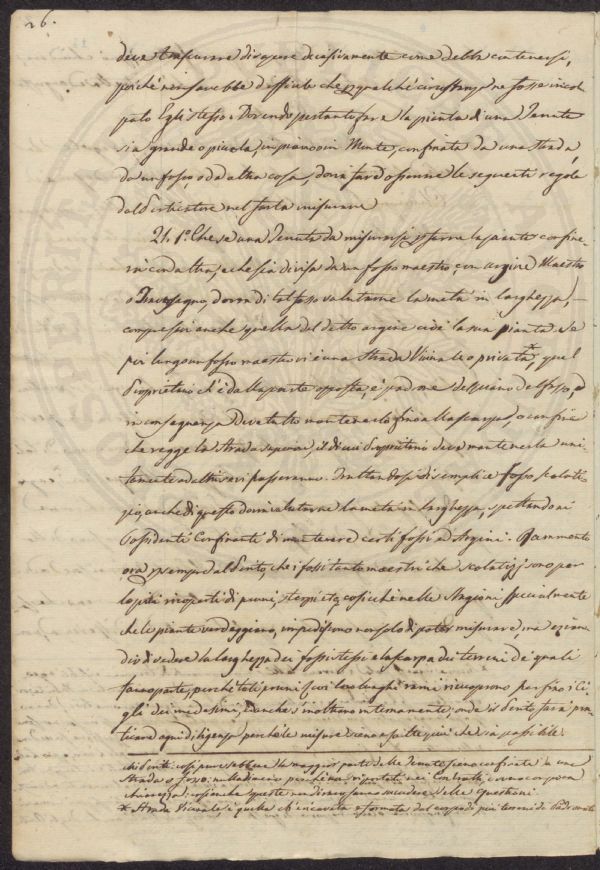 26.
deve trascurare di sapere decisivamente come debba contenersi,
poiché non sarebbe difficile che per qualche circostanza ne fosse incol
pato Egli stesso. Dovendo pertanto fare la pianta di una Tenuta
sia grande o piccola, in piano o in Monte, confinata da una strada
da un fosso, o da altra cosa, dovrà fare osservare le seguenti regole
dal Perticatore nel farla misurare
21. 1.° Che se una Tenuta da misurarsi per farne la pianta confine
rà con altra, e che sia divisa da un fosso maestro con argine Maestro
o Traversagno, dovrà di tal fosso valutarne la metà in larghezza,
compresovi anche quella del detto argine cioè la sua pianta. Se
poi lungo un fosso maestro vi è una strada Vicinale o privata*, quel
Proprietario ch'è dalla parte opposta, è padrone del piano del fosso, e
in conseguenza deve tutto mantenerlo fino alla scarpa, o confine
che regge la strada superiore, il di cui Proprietario deve mantenerla uni-
tamente ad altri se vi passeranno. Trattandosi di semplice fosso scolatiz
zio, anche di questo dovrà valutarne la metà in larghezza, spettando ai
Possidenti Confinanti di mantenere certi fossi ed Argini. Rammento
ora per sempre al Perito, che i fossi tanto maestri che scolatizzj sono per
lo più ricoperti di pruni, sterpi etc, cosicché nelle Stagioni specialmente
che le piante verdeggiano, impediscono non solo di poter misurare, ma ezian
dio di vedere la larghezza dei fossi stessi e la scarpa dei terreni de' quali
fanno parte, perché tali pruni coi loro lunghi rami ricuoprono perfino i Ci
gli dei medesimi, e anche s'inoltrano internamente; onde il Perito farà pra
ticare ogni diligenza perché le misure sieno esatte più che sia possibile.
chi Periti: così pure sebbene la maggior parte delle Tenute sieno confinate da una
Strada o fosso, nulladimeno perché ma riportati nei Contratti con
chiarezza: cosicché queste non di rado fanno succedere delle questioni.
* Strada Vicinale, è quella ch'è incavata e formata dal corpo di più terreni di Padronato